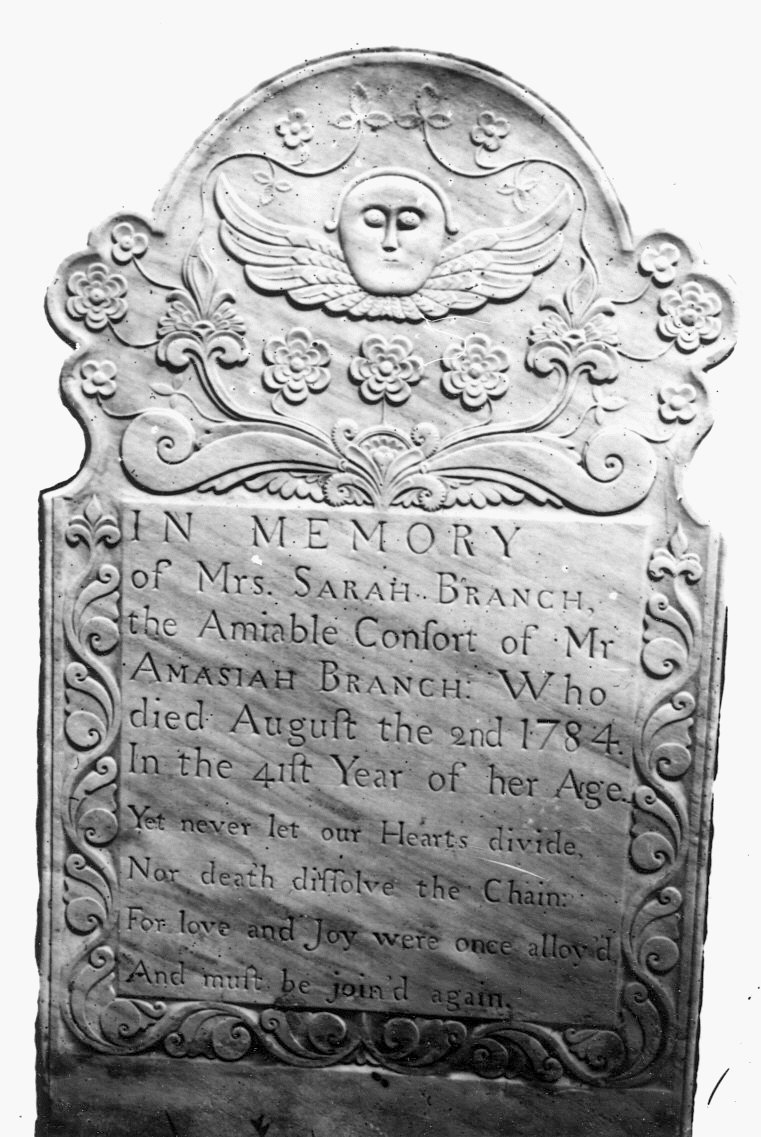 IN MEMORY
of Mrs. SARAH BRANCH,
the Amiable Conſort of Mr
AMASIAH BRANCH: Who
died Auguſt the 2nd 1784.
In the 41ſt Year of her Age.
Yet never let our Hearts divide,
Nor death diſſolve the Chain:
For love and Joy were once alloy'd,
And muſt be join'd again.